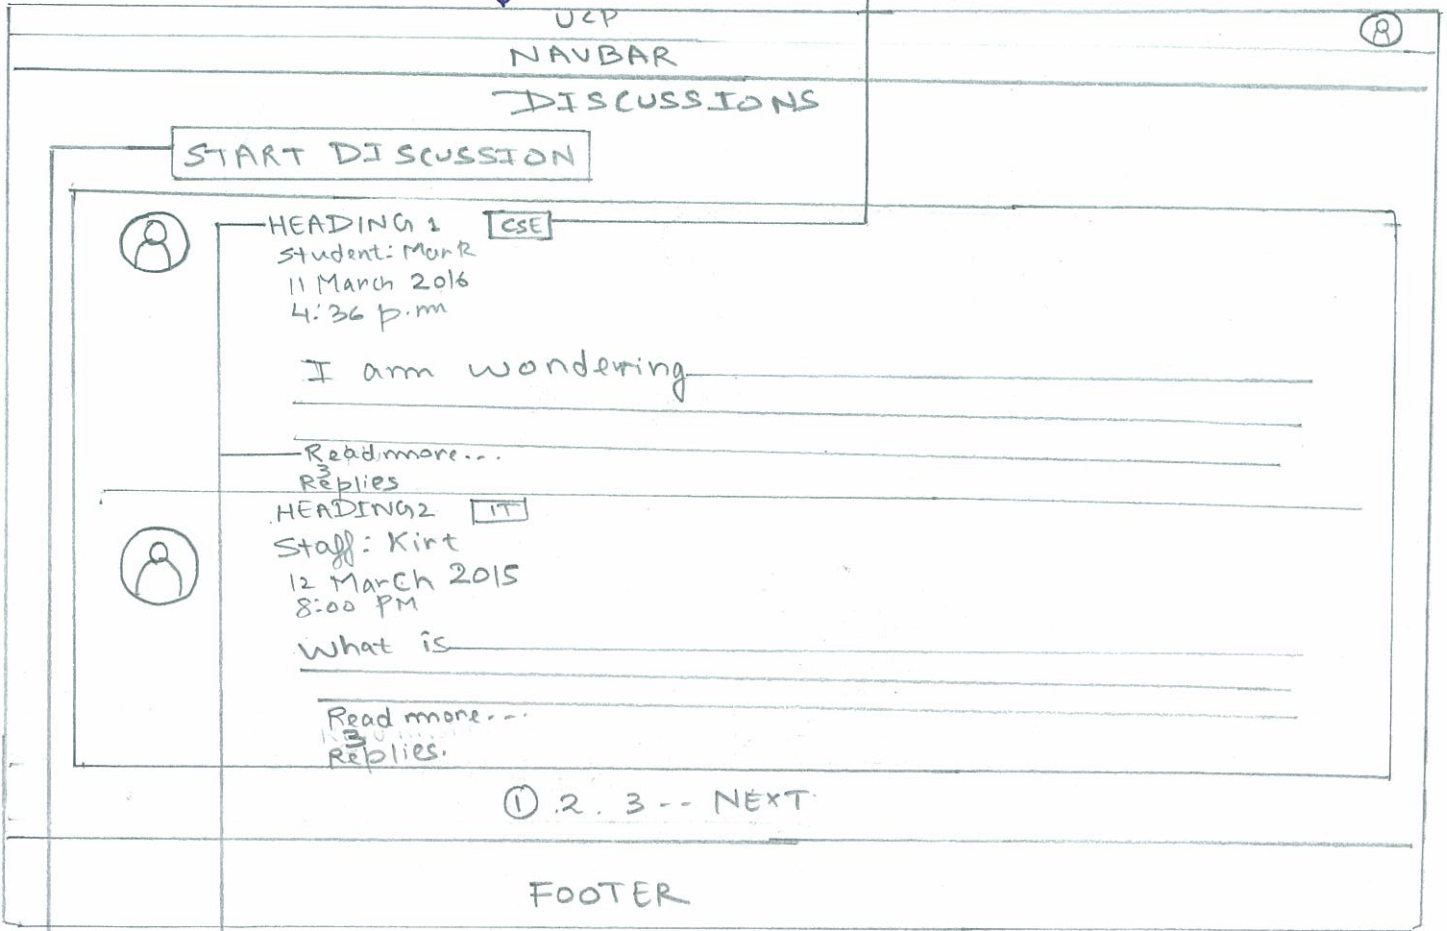 UCP
NAVBAR
DISCUSSIONS
START DISCUSSION
HEADING 1 CSE
Student: Mark
11 March 2016
4:36 p.m
I am wondering
Readmore...
3
Replies
HEADING2 IT
Staff: Kirt
12 March 2015
8:00 PM
What is
Read more...
3
Replies.
1 . 2 . 3 -- NEXT
FOOTER